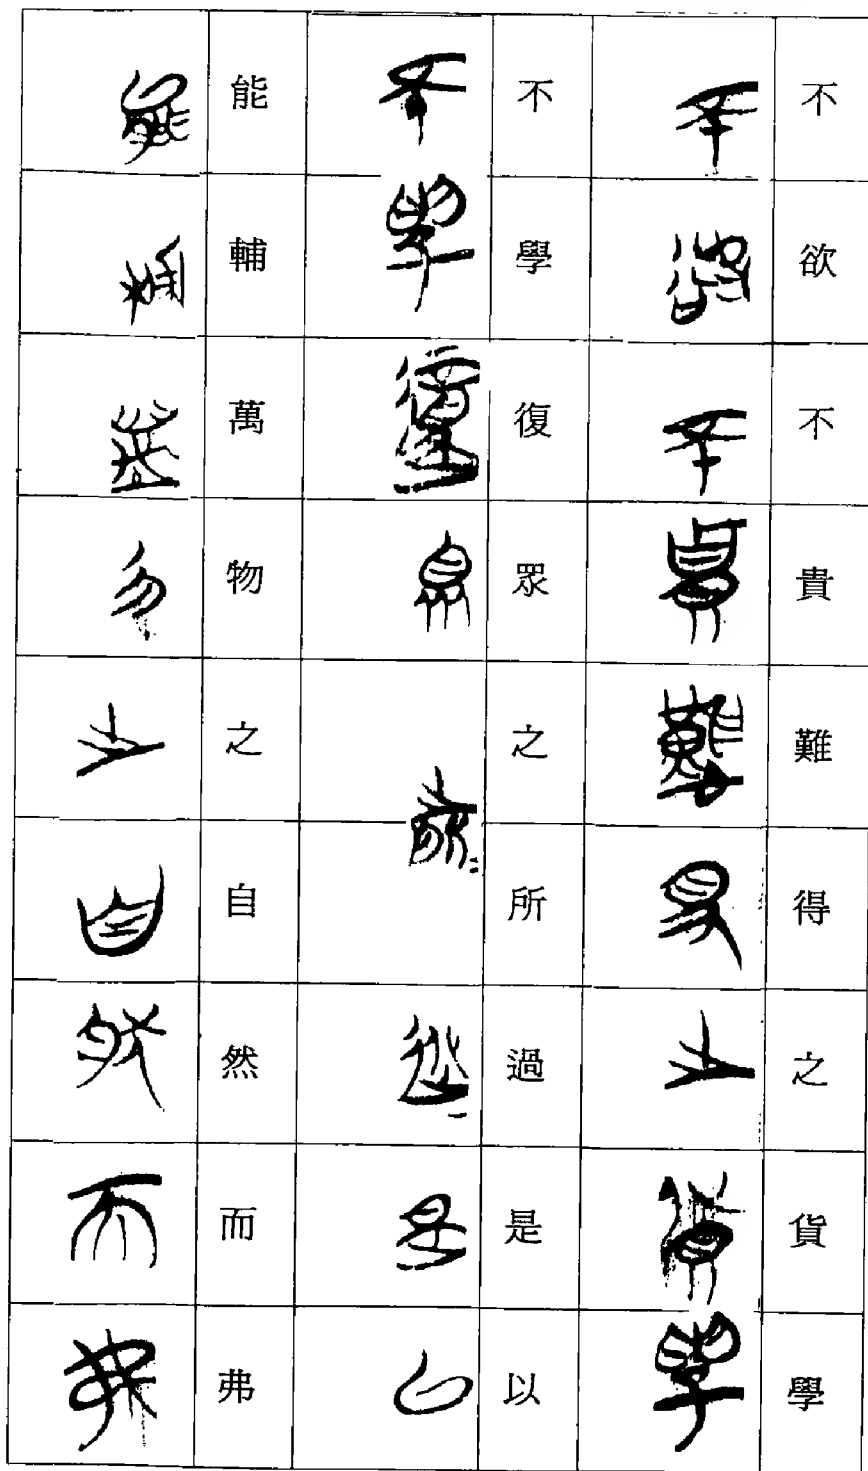 不欲不貴難得之貨學
不學復眾之所過是以
能輔萬物之自然而弗